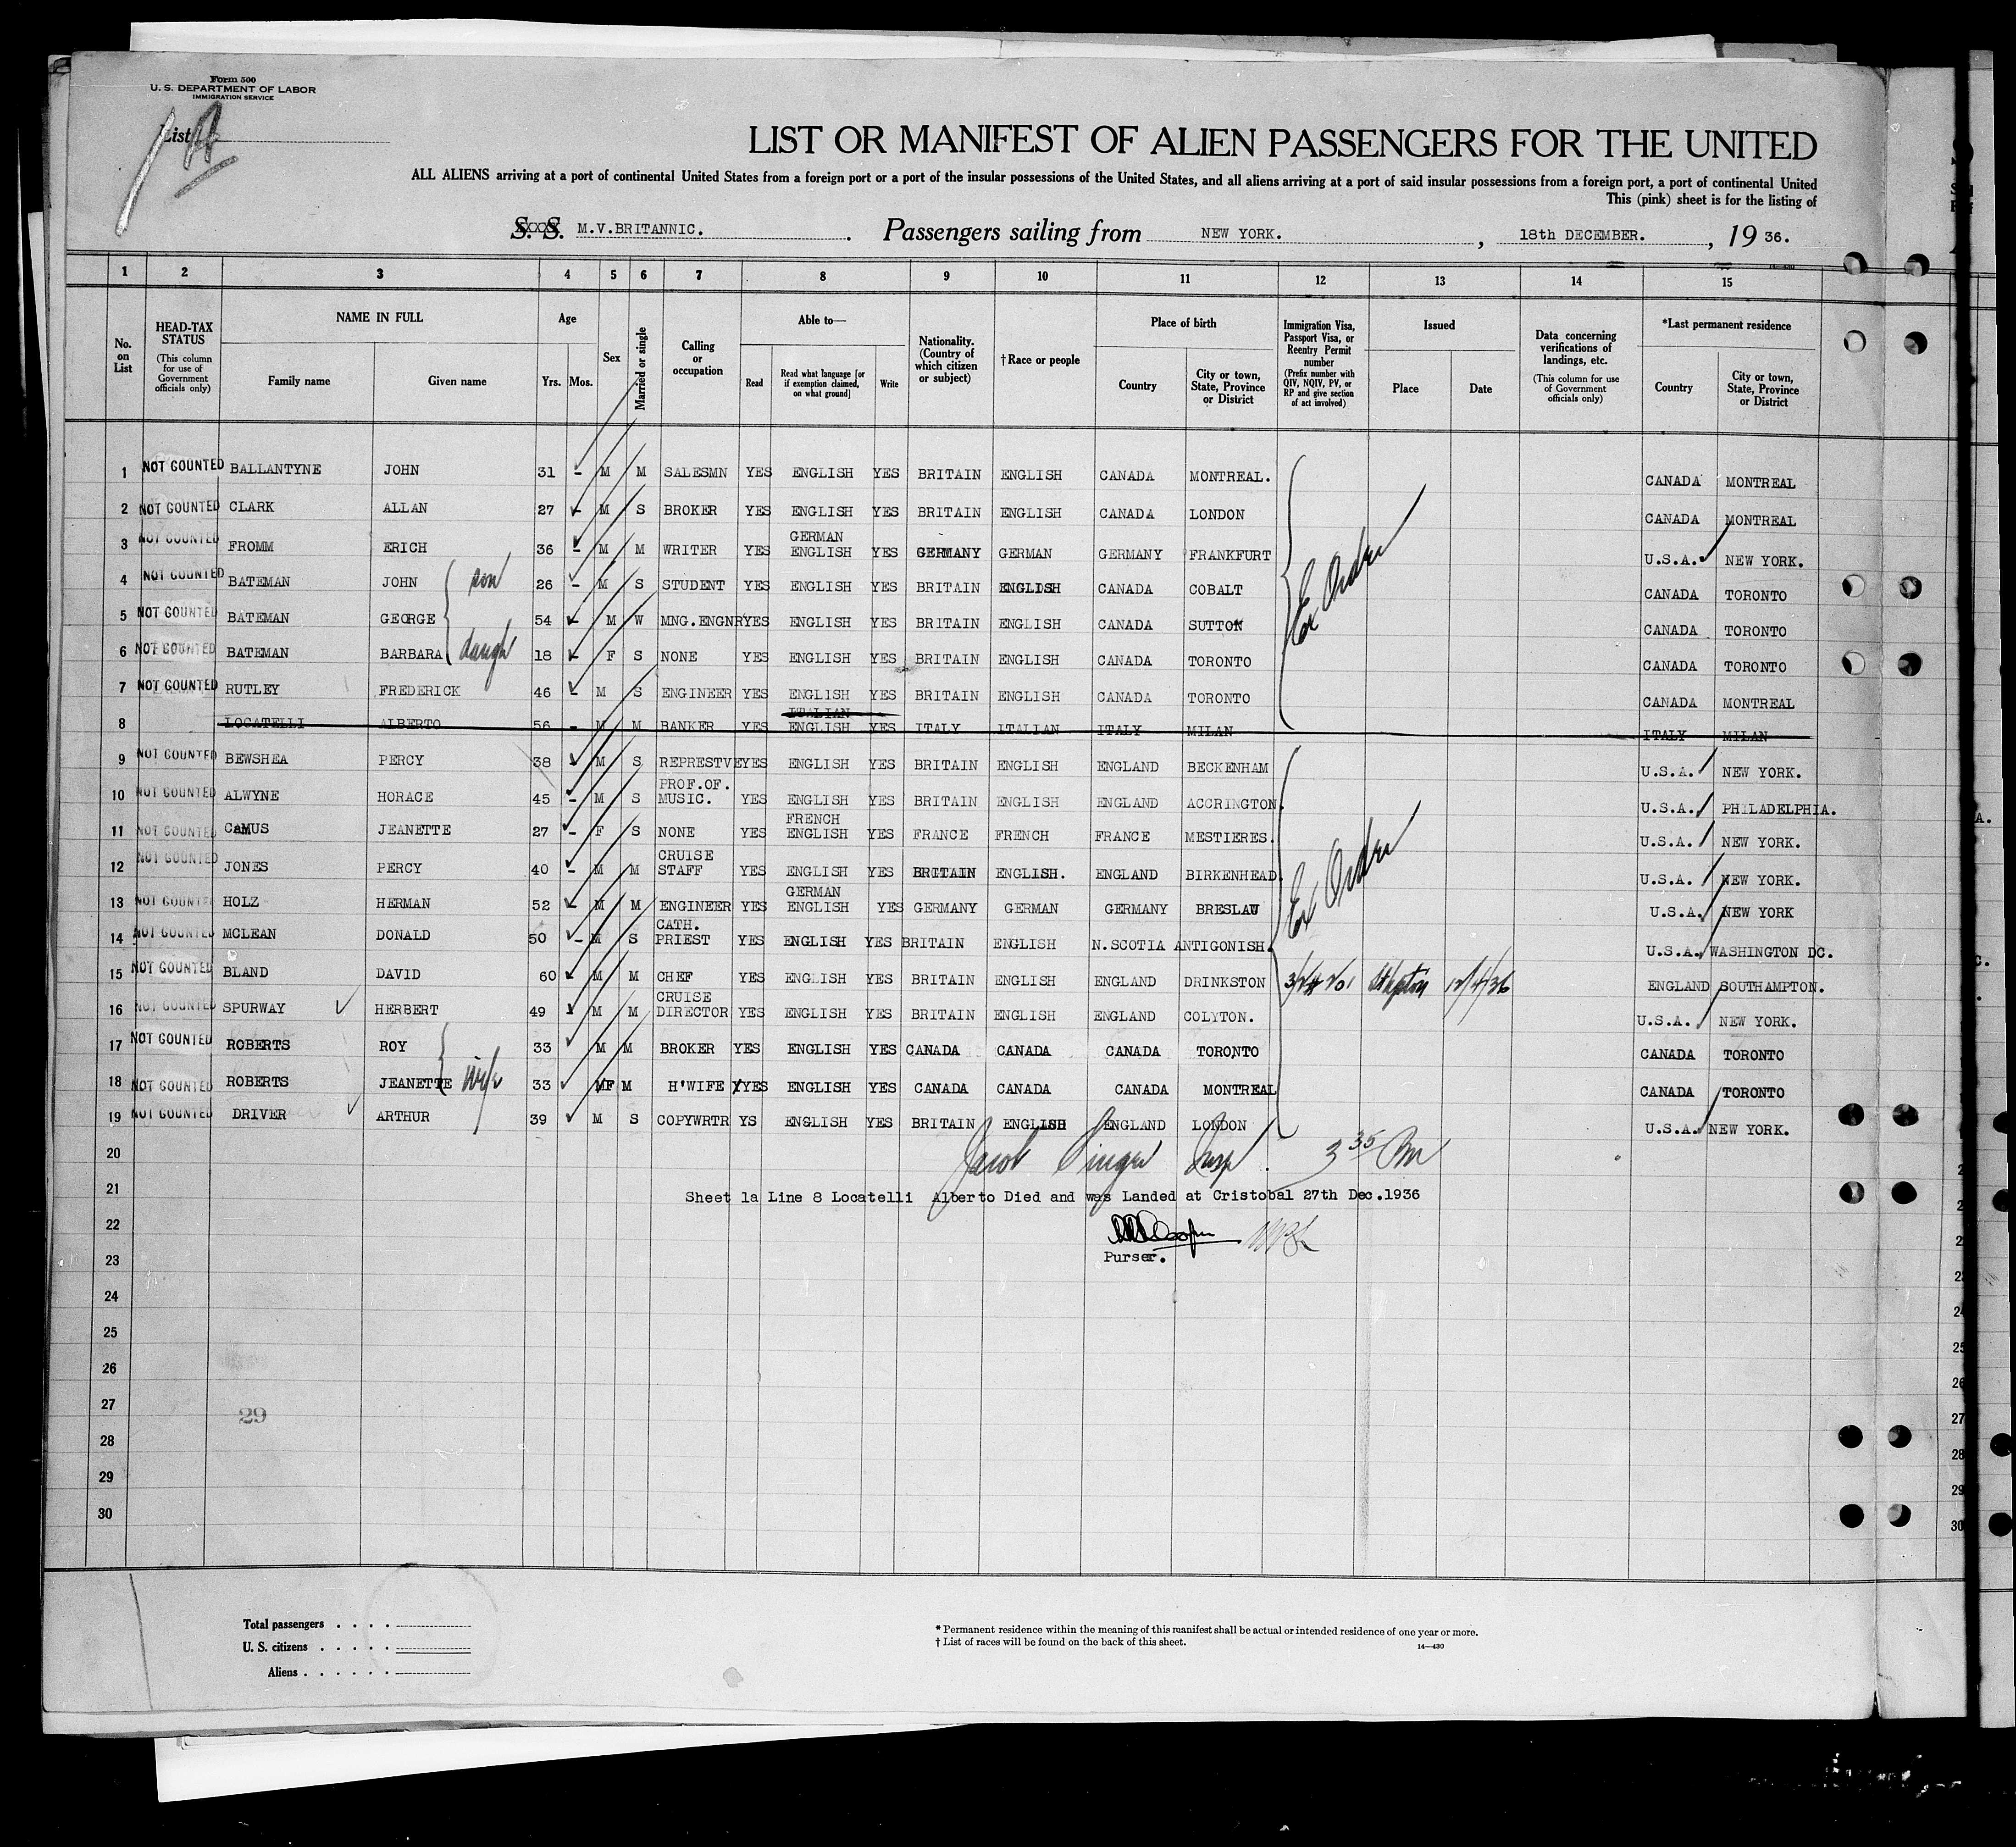 Form 500
U. S. DEPARTMENT OF LABOR
IMMIGRATION SERVICE
List 1A
LIST OR MANIFEST OF ALIEN PASSENGERS FOR THE UNITED
ALL ALIENS arriving at a port of continental United States from a foreign port or a port of the insular possessions of the United States, and all aliens arriving at a port of said insular possessions from a foreign port, a port of continental United
This (pink) sheet is for the listing of
S. S. M.V.BRITANNIC. Passengers sailing from NEW YORK. , 18th DECEMBER. , 19 36.
1 2 3 4 5 6 7 8 9 10 11 12 13 14 15
No. on List
HEAD-TAX STATUS
(This column for use of Government officials only)
NAME IN FULL
Family name Given name
Age
Yrs. Mos.
Sex
Married or single
Calling or occupation
Able to—
Read
Read what language [or if exemption claimed, on what ground]
Write
Nationality. (Country of which citizen or subject)
†Race or people
Place of birth
Country
City or town, State, Province or District
Immigration Visa, Passport Visa, or Reentry Permit number
(Prefix number with QIV, NQIV, PV, or RP and give section of act involved)
Issued
Place Date
Data concerning verifications of landings, etc.
(This column for use of Government officials only)
*Last permanent residence
Country
City or town, State, Province or District
1 NOT COUNTED BALLANTYNE JOHN 31 - M M SALESMN YES ENGLISH YES BRITAIN ENGLISH CANADA MONTREAL. CANADA MONTREAL
2 NOT COUNTED CLARK ALLAN 27 - M S BROKER YES ENGLISH YES BRITAIN ENGLISH CANADA LONDON CANADA MONTREAL
3 NOT COUNTED FROMM ERICH 36 - M M WRITER YES GERMAN ENGLISH YES GERMANY GERMAN GERMANY FRANKFURT U.S.A. NEW YORK.
4 NOT COUNTED BATEMAN JOHN son 26 - M S STUDENT YES ENGLISH YES BRITAIN ENGLISH CANADA COBALT Ex Order CANADA TORONTO
5 NOT COUNTED BATEMAN GEORGE 54 - M W MNG.ENGNR YES ENGLISH YES BRITAIN ENGLISH CANADA SUTTON CANADA TORONTO
6 NOT COUNTED BATEMAN BARBARA daugh 18 - F S NONE YES ENGLISH YES BRITAIN ENGLISH CANADA TORONTO CANADA TORONTO
7 NOT COUNTED RUTLEY FREDERICK 46 - M S ENGINEER YES ENGLISH YES BRITAIN ENGLISH CANADA TORONTO CANADA MONTREAL
8 LOCATELLI ALBERTO 56 - M M BANKER YES ITALIAN ENGLISH YES ITALY ITALIAN ITALY MILAN ITALY MILAN
9 NOT COUNTED BEWSHEA PERCY 38 M S REPRESTVE YES ENGLISH YES BRITAIN ENGLISH ENGLAND BECKENHAM U.S.A. NEW YORK.
10 NOT COUNTED ALWYNE HORACE 45 - M S PROF.OF. MUSIC. YES ENGLISH YES BRITAIN ENGLISH ENGLAND ACCRINGTON. U.S.A. PHILADELPHIA.
11 NOT COUNTED CAMUS JEANETTE 27 - F S NONE YES FRENCH ENGLISH YES FRANCE FRENCH FRANCE MESTIERES. U.S.A. NEW YORK.
12 NOT COUNTED JONES PERCY 40 - M M CRUISE STAFF YES ENGLISH YES BRITAIN ENGLISH. ENGLAND BIRKENHEAD. Ex Order U.S.A. NEW YORK.
13 NOT COUNTED HOLZ HERMAN 52 - M M ENGINEER YES GERMAN ENGLISH YES GERMANY GERMAN GERMANY BRESLAU U.S.A. NEW YORK
14 NOT COUNTED MCLEAN DONALD 50 - M S CATH. PRIEST YES ENGLISH YES BRITAIN ENGLISH N.SCOTIA ANTIGONISH. U.S.A. WASHINGTON DC.
15 NOT COUNTED BLAND DAVID 60 M M CHEF YES ENGLISH YES BRITAIN ENGLISH ENGLAND DRINKSTON ENGLAND SOUTHAMPTON.
16 NOT COUNTED SPURWAY HERBERT 49 M M CRUISE DIRECTOR YES ENGLISH YES BRITAIN ENGLISH ENGLAND COLYTON. U.S.A. NEW YORK.
17 NOT COUNTED ROBERTS ROY 33 M M BROKER YES ENGLISH YES CANADA CANADA CANADA TORONTO CANADA TORONTO
18 NOT COUNTED ROBERTS JEANETTE wife 33 F M H'WIFE YES ENGLISH YES CANADA CANADA CANADA MONTREAL CANADA TORONTO
19 NOT COUNTED DRIVER ARTHUR 39 M S COPYWRTR YS ENGLISH YES BRITAIN ENGLISH ENGLAND LONDON U.S.A. NEW YORK.
20 Jacob Singer Insp. 3 35 Pm
21 Sheet 1a Line 8 Locatelli Alberto Died and was Landed at Cristobal 27th Dec.1936
22
23 Purser.
24
25
26
27 29
28
29
30
Total passengers . . . .
U. S. citizens . . . . .
Aliens . . . . . .
* Permanent residence within the meaning of this manifest shall be actual or intended residence of one year or more.
† List of races will be found on the back of this sheet.
14—430